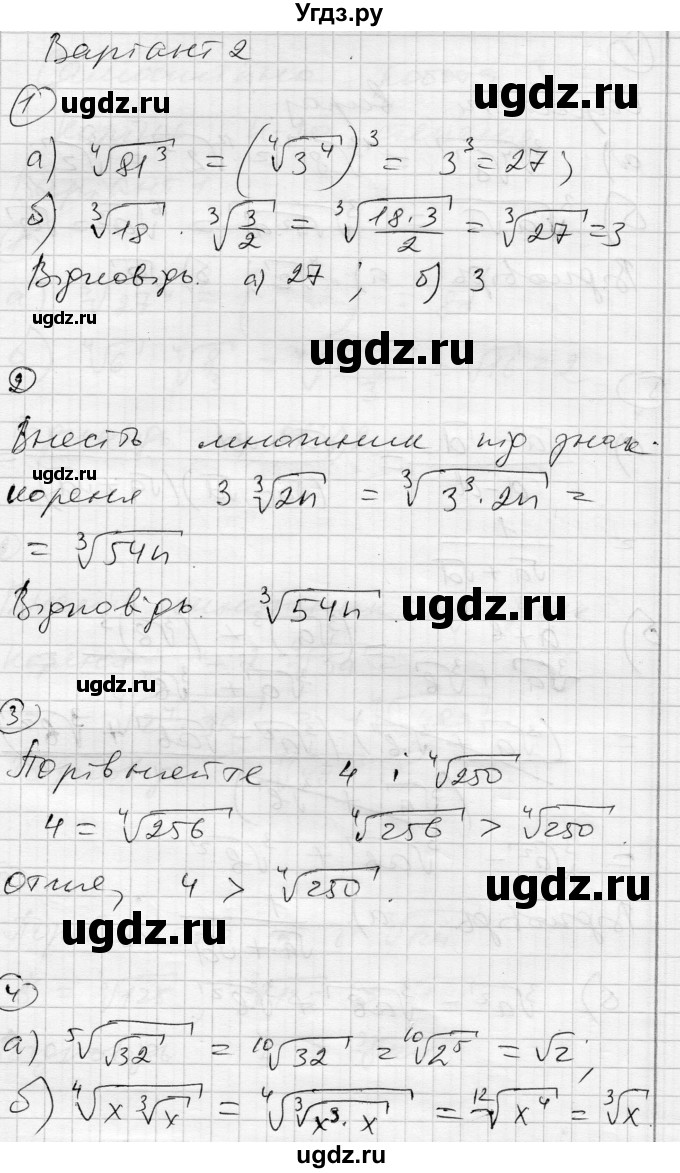 Угдз.ру
Варіант 2
1 ugdz.ru ugdz.ru
а) ⁴√81³ = (⁴√3⁴)³ = 3³ = 27;
б) ³√18 · ³√3/2 = ³√18·3/2 = ³√27 = 3
Відповідь. а) 27; б) 3
ugdz.ru
ugdz.ru
2
Внесіть множник під знак
ugdz.ru
кореня 3 ³√2n = ³√3³·2n =
= ³√54n
Відповідь. ³√54n. ugdz.ru
ugdz.ru
3
Порівнейте 4 і ⁴√250
4 = ⁴√256 ⁴√256 > ⁴√250.
отже, 4 > ⁴√250. ugdz.ru
ugdz.ru
4
а) ⁵√√32 = ¹⁰√32 = ¹⁰√2⁵ = √2;
б) ⁴√x ³√x = ⁴√³√x³·x = ¹²√x⁴ = ³√x.
ugdz.ru